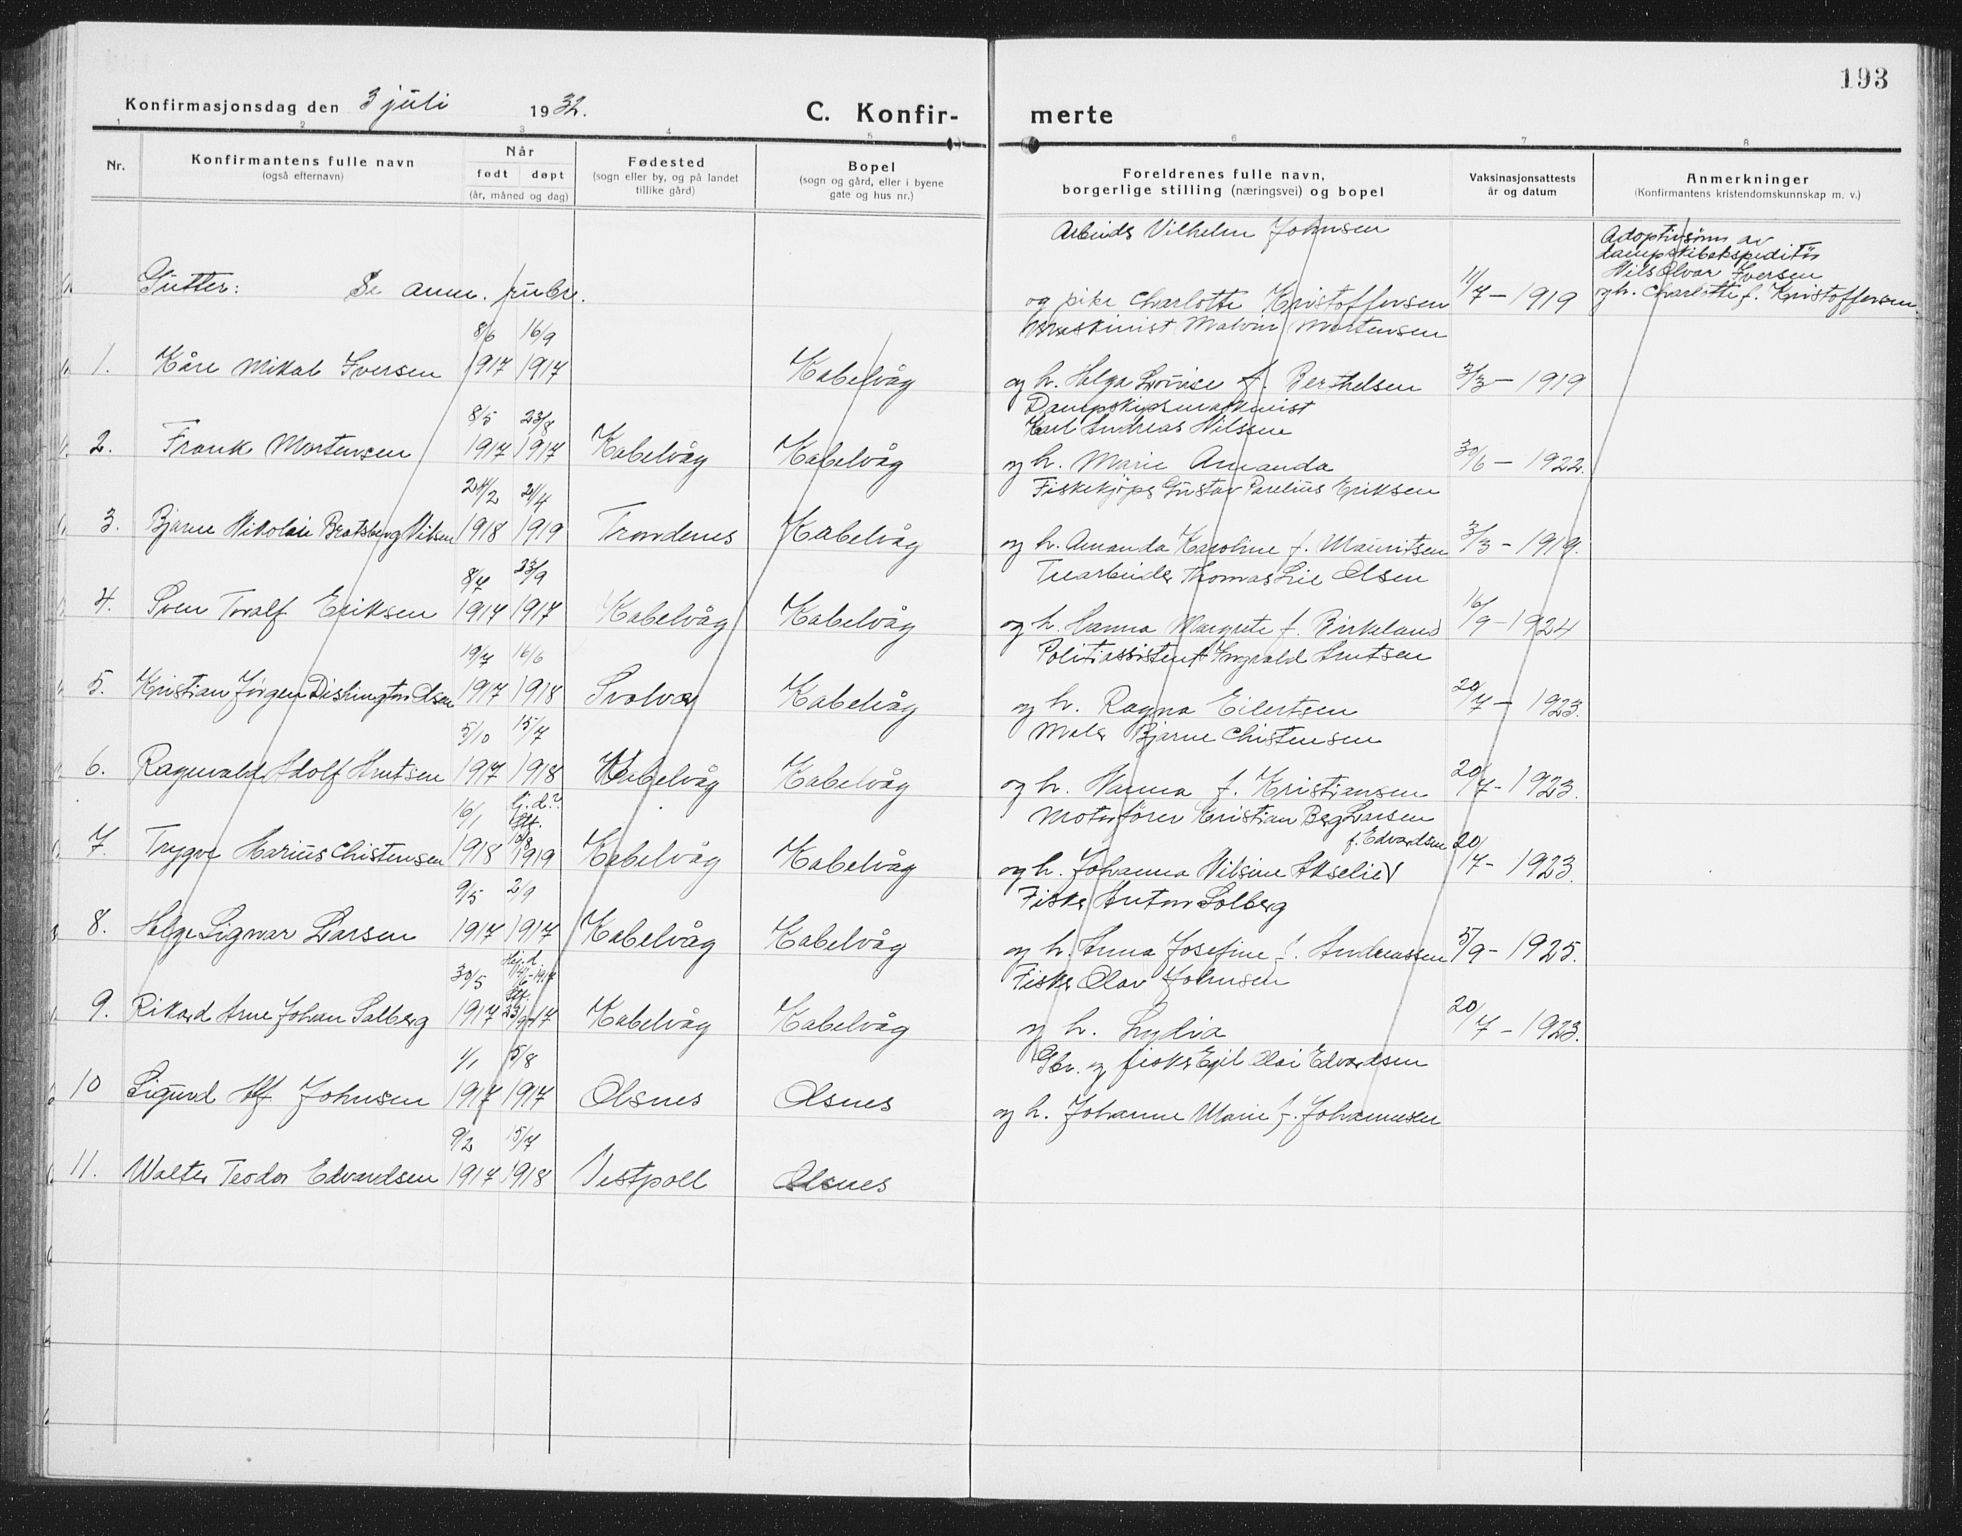 193
Konfirmasjonsdag den 3 juli 1932.
C. Konfir-
merte
1 2 3 4 5
6 7 8
Nr.
Konfirmantens fulle navn
(også efternavn)
Når
født døpt
(år, måned og dag)
Fødested
(sogn eller by, og på landet
tillike gård)
Bopel
(sogn og gård, eller i byene
gate og hus nr.)
Foreldrenes fulle navn,
borgerlige stilling (næringsvei) og bopel
Vaksinasjonsattests
år og datum
Anmerkninger
(Konfirmantens kristendomskunnskap m. v.)
Gutter: Se anm.
8/6 16/9
1. Kåre Mikal Iversen 1917 1917 Kabelvåg
8/5 23/8
2. Frank Mortensen 1917 1917 Kabelvåg Kabelvåg
24/2 21/4
3. Bjarne Nikolai Bratsberg Nilsen 1918 1919 Trondenes Kabelvåg
8/7 23/9
4. Sven Toralf Eriksen 1917 1917 Kabelvåg Kabelvåg
19/7 16/6
5. Kristian Jørgen Dishington Olsen 1917 1918 Svolvær Kabelvåg
5/10 15/7
6. Ragnvald Adolf Knutsen 1917 1918 Kabelvåg Kabelvåg
16/1
7. Trygve Harius Christensen 1918 1919 Kabelvåg Kabelvåg
9/5 2/9
8. Helge Sigvar Larsen 1917 1917 Kabelvåg Kabelvåg
30/5
9. Rikard Arne Johan Solberg 1917 23/9-17 Kabelvåg Kabelvåg
1/1 5/8
10 Sigurd Alf Johnsen 1917 1917 Olsnes Olsnes
9/2 15/7
11. Walter Teodor Edvardsen 1917 1918 Vestpoll Olsnes
Arbeider Vilhelm Johnsen
og pike Charlotte Kristoffersen 11/7 – 1919
Adoptivsønn av
dampskibsekspeditør
Nils Olvar Iversen
og h. Charlotte f. Kristoffersen.
Maskinist Malvin Mortensen
og h. Helga Lovise f. Berthelsen 3/3 – 1919
Dampskipsmaskinist
Karl Andreas Nilssen
og h. Marie Amanda 30/6 – 1922.
Fiskekjøper Gustav Parelius Eriksen
og h. Amanda Karoline f. Mauritsen 3/3 – 1919.
Trearbeider Thomas Lie Olsen
og h. Hanna Margrete f. Birkeland 16/9 – 1924
Politiassistent Ingvald Knutsen
og h. Ragna Eilertsen 20/7 – 1923.
Maler Bjarne Christensen
og h. Nanna f. Kristiansen 20/7 – 1923.
Motorfører Kristian Berg Larsen
f. Edvardsen
og h. Johanna Nilsine Akselie 20/7 – 1923.
Fisker Anton Solberg
og h. Anna Josefine f. Andreassen 5/9 – 1925.
Fisker Olav Johnsen
og h. Lydia 20/7 – 1923.
Gbr. og fisker Egil Olai Edvardsen
og h. Johanne Marie f. Johannessen